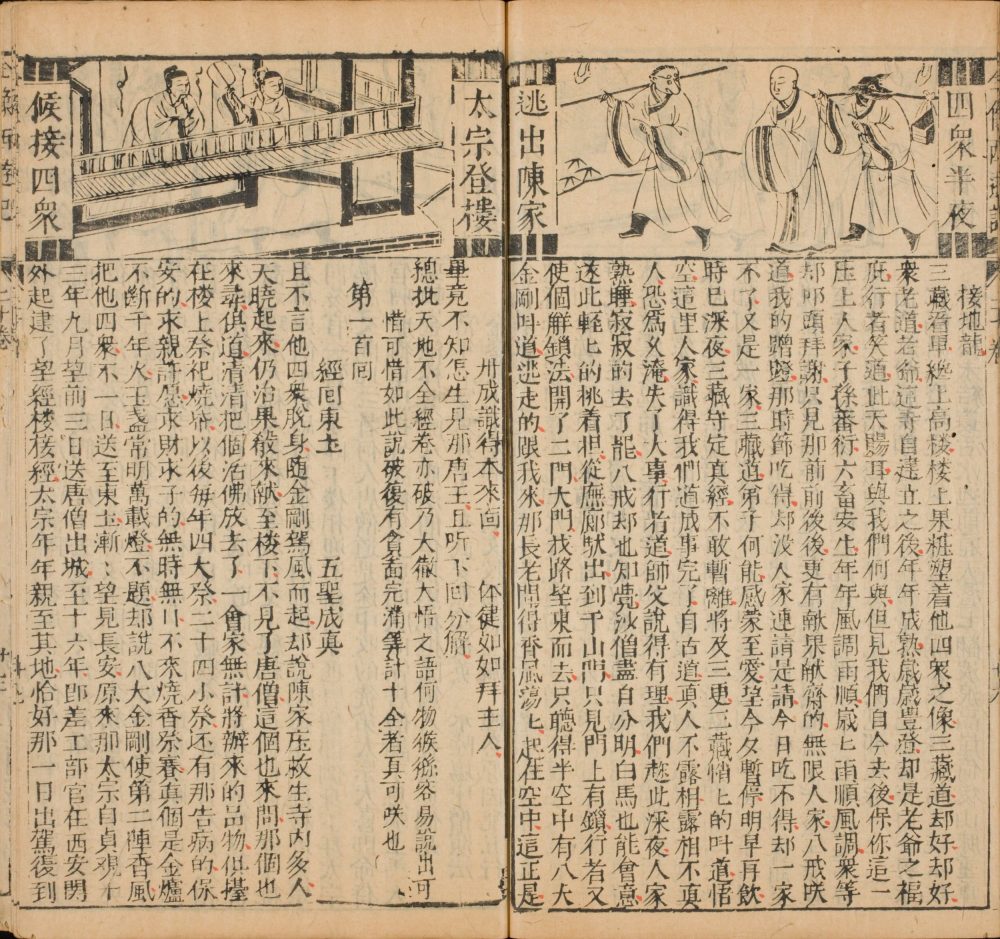 四衆半夜
逃出陳家
接地龍
三藏看畢纔上高樓樓上果粧塑着他四衆之像三藏道却好却好
衆老道老爺這寺自建立之後年年成熟歲歲豊登却是老爺之福
庇行者笑道此天賜耳與我們何與但見我們自今去後保你這一
庄上人家子孫蕃衍六畜安生年年風調雨順歲匕雨順風調衆等
却叩頭拜謝只見那前前後後更有献果献齋的無限人家八戒咲
道我的蹭蹬那時節吃得却没人家連請是請今日吃不得却一家
不了又是一家三藏道弟子何能感家至愛望今夕暫停明早再飲
時已深夜三藏守定真經不敢暫離將及三更三藏悄匕的叫道悟
空這里人家識得我們道成事完了自古道真人不露相露相不真
人恐爲久淹失了大事行者道師父說得有理我們趂此深夜人家
熟睡寂寂的去了罷八戒却也知覺沙僧盡自分明白馬也能會意
遂此輕匕的挑着担從廡廊馱出到于山門只見門上有鎖行者又
使個觧鎖法開了二門大門找路望東而去只聽得半空中有八大
金剛叫道逃走的跟我來那長老聞得香風蕩匕起在空中這正是
太宗登樓
候接四衆
丹成識得本來面 体健如如拜主人
畢竟不知怎生見那唐王且听下回分解
總批天地不全經卷亦破乃大徹大悟之語何物猴孫容易說出可
惜可惜如此說破復有貪着完滿筭計十全者真可咲也
第一百回
經回東土 五聖成真
且不言他四衆脫身隨金剛駕風而起却說陳家庄救生寺内多人
天曉起來仍治果殽來献至樓下不見了唐僧這個也來問那個也
來尋俱道清清把個活佛放去了一會家無計將辦來的品物俱擡
在樓上祭祀燒帋以後每年四大祭二十四小祭还有那告病的保
安的求親許愿求財求子的無時無日不來燒香祭賽真個是金爐
不斷千年火玉盞常明萬載燈不題却說八大金剛使第二陣香風
把他四衆不一日送至東土漸漸望見長安原來那太宗自貞觀十
三年九月望前三日送唐僧出城至十六年即差工部官在西安関
外起建了望經樓接經太宗年年親至其地恰好那一日出駕復到